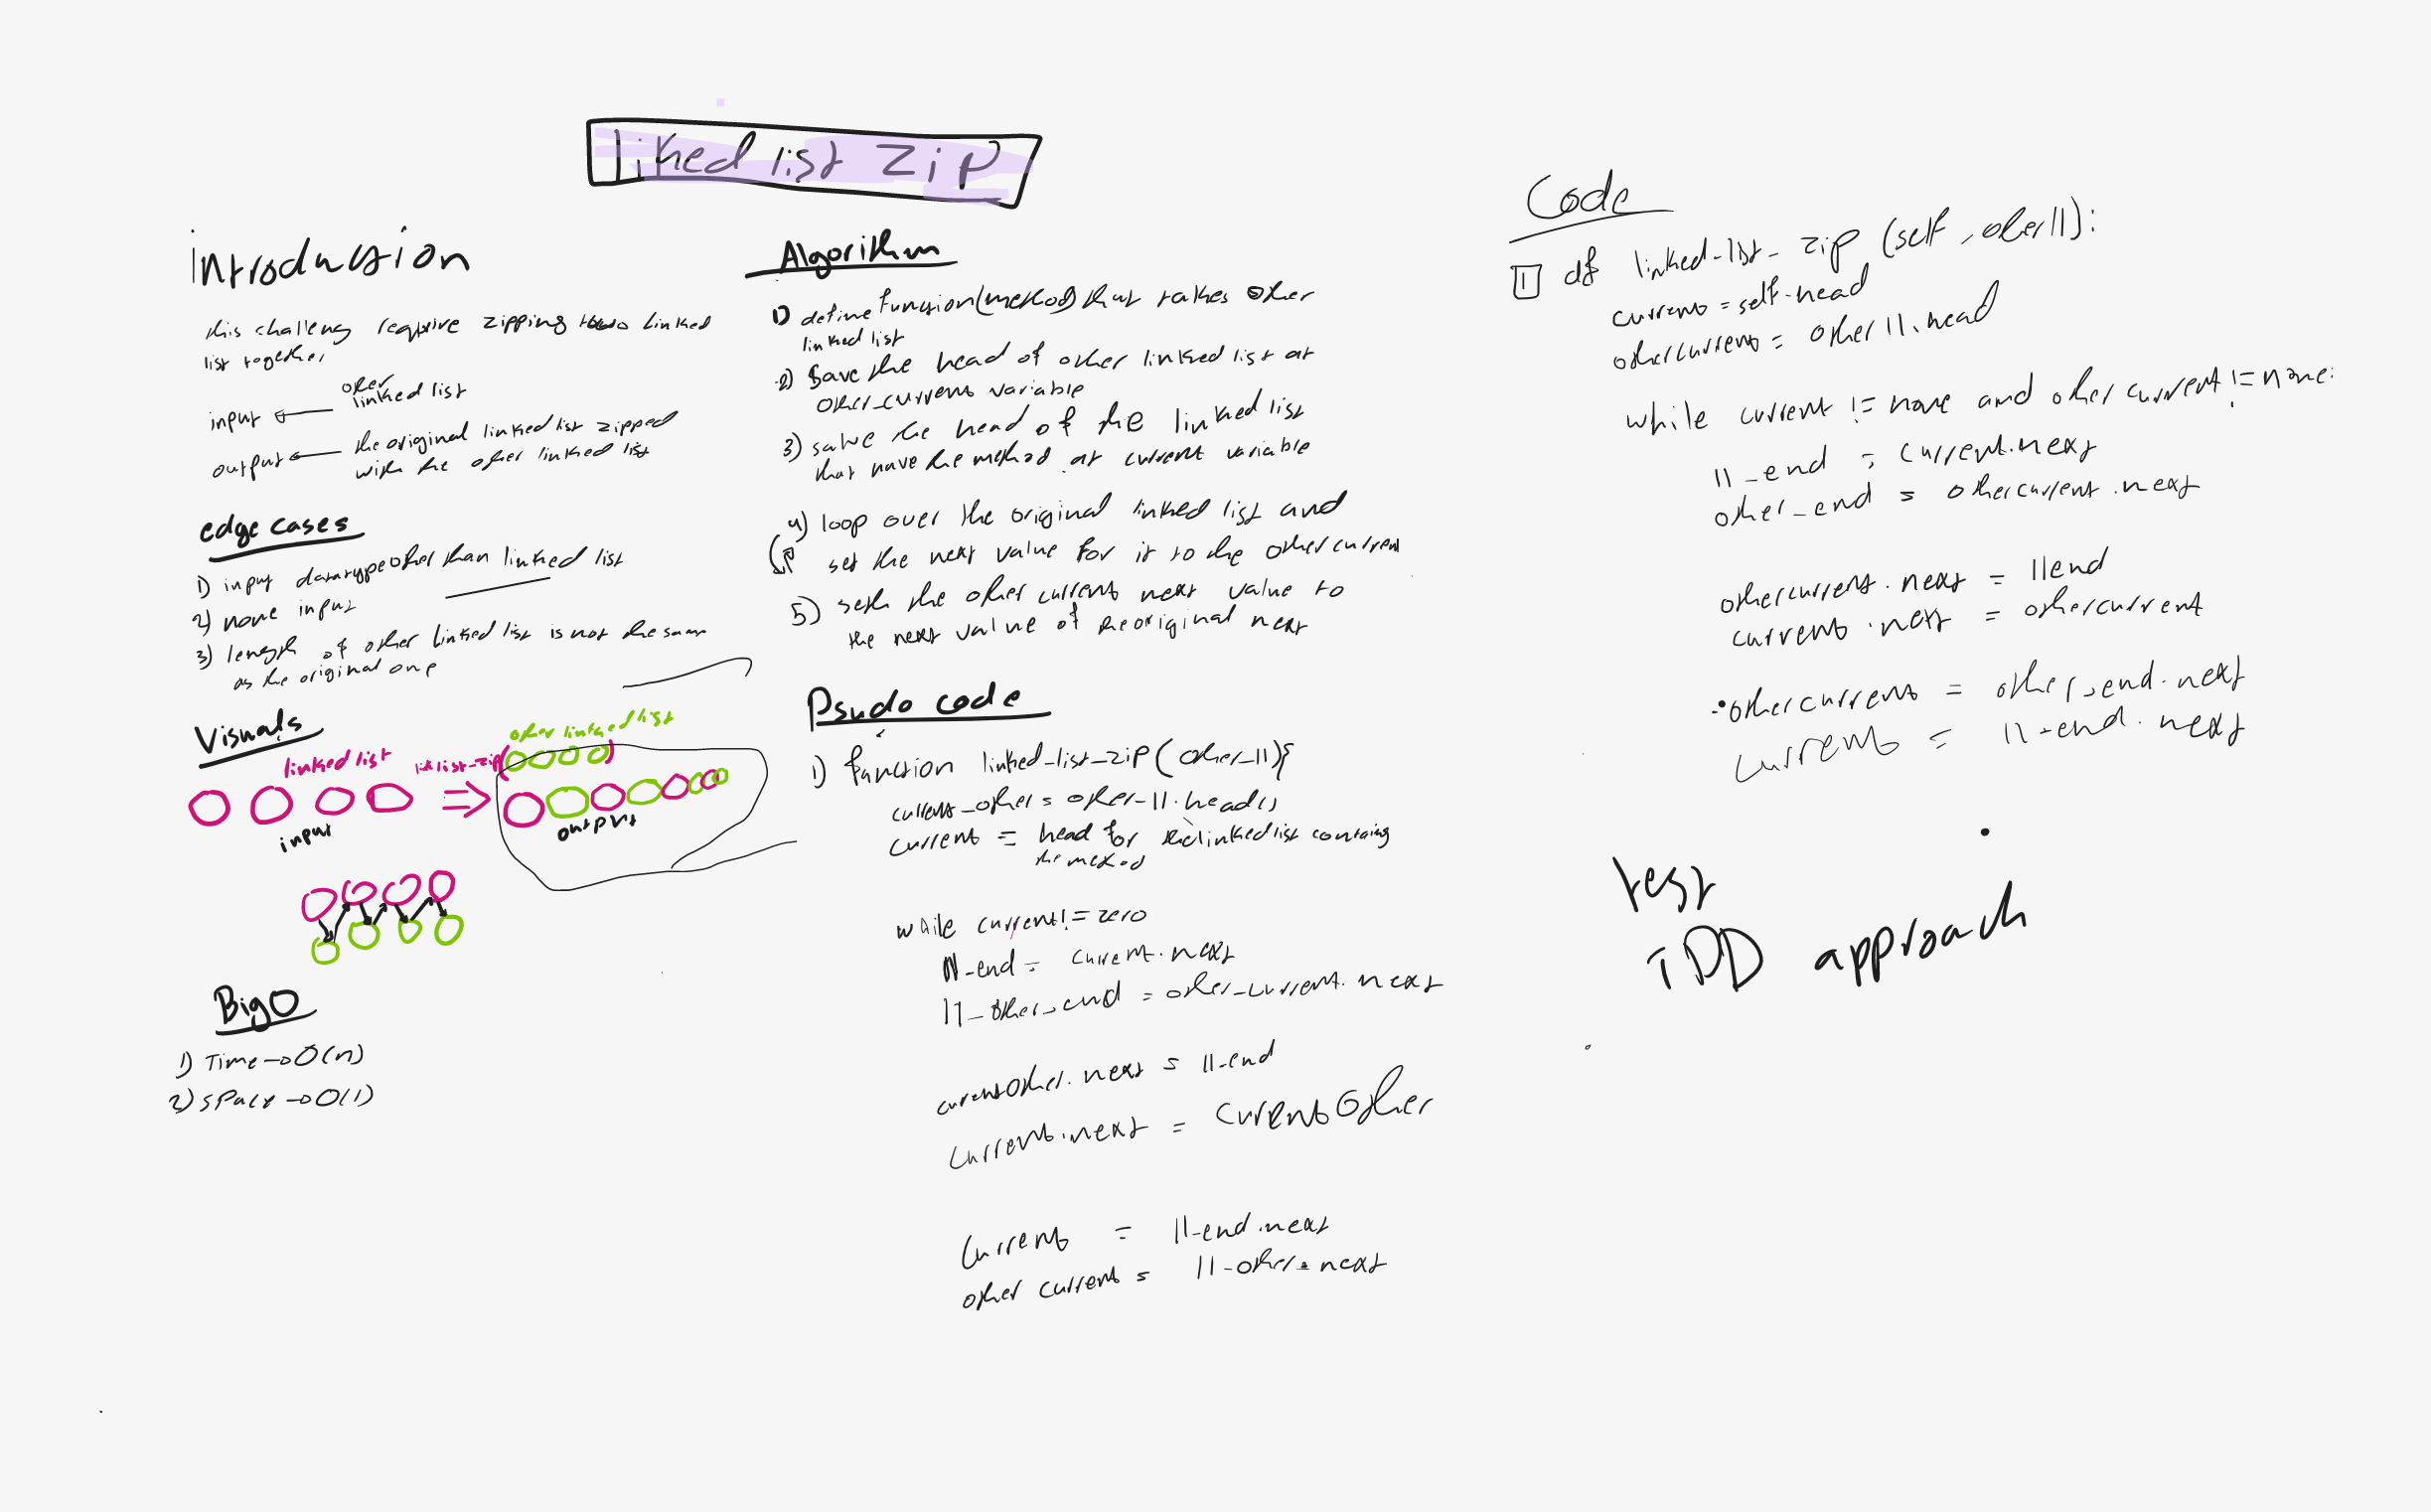 liked list zip
introduction
this challeng require zipping two linked
list together
input ← other linked list
output ← the original linked list zipped
with the other linked list
edge cases
1) input datatype other than linked list
2) none input
3) length of other linked list is not the sam
as the original one
Visuals
linked list
other linked list
input
output
Big O
1) Time → O(n)
2) space → O(1)
Algorithm
1) define function(method) that takes other
linked list
2) Save the head of other linked list at
other_current variable
3) save the head of the linked list
that have the method at current variable
4) loop over the original linked list and
set the next value for it to the other current
5) seth the other current next value to
the next value of the original next
Psudo code
1) function linked_list_zip(other_ll){
current_other = other_ll.head()
current = head for the linked list containg
the method
while current != zero
ll_end = current.next
ll_other_end = other_current.next
currentOther.next = ll_end
current.next = currentOther
Current = ll_end.next
other current = ll_other.next
Code
1 def linked_list_zip (self, otherll):
current = self.head
othercurrent = otherll.head
while current != none and othercurrent != none:
ll_end = current.next
other_end = othercurrent.next
othercurrent.next = llend
current.next = othercurrent
othercurrent = other_end.next
current = ll_end.next
test
TDD approach